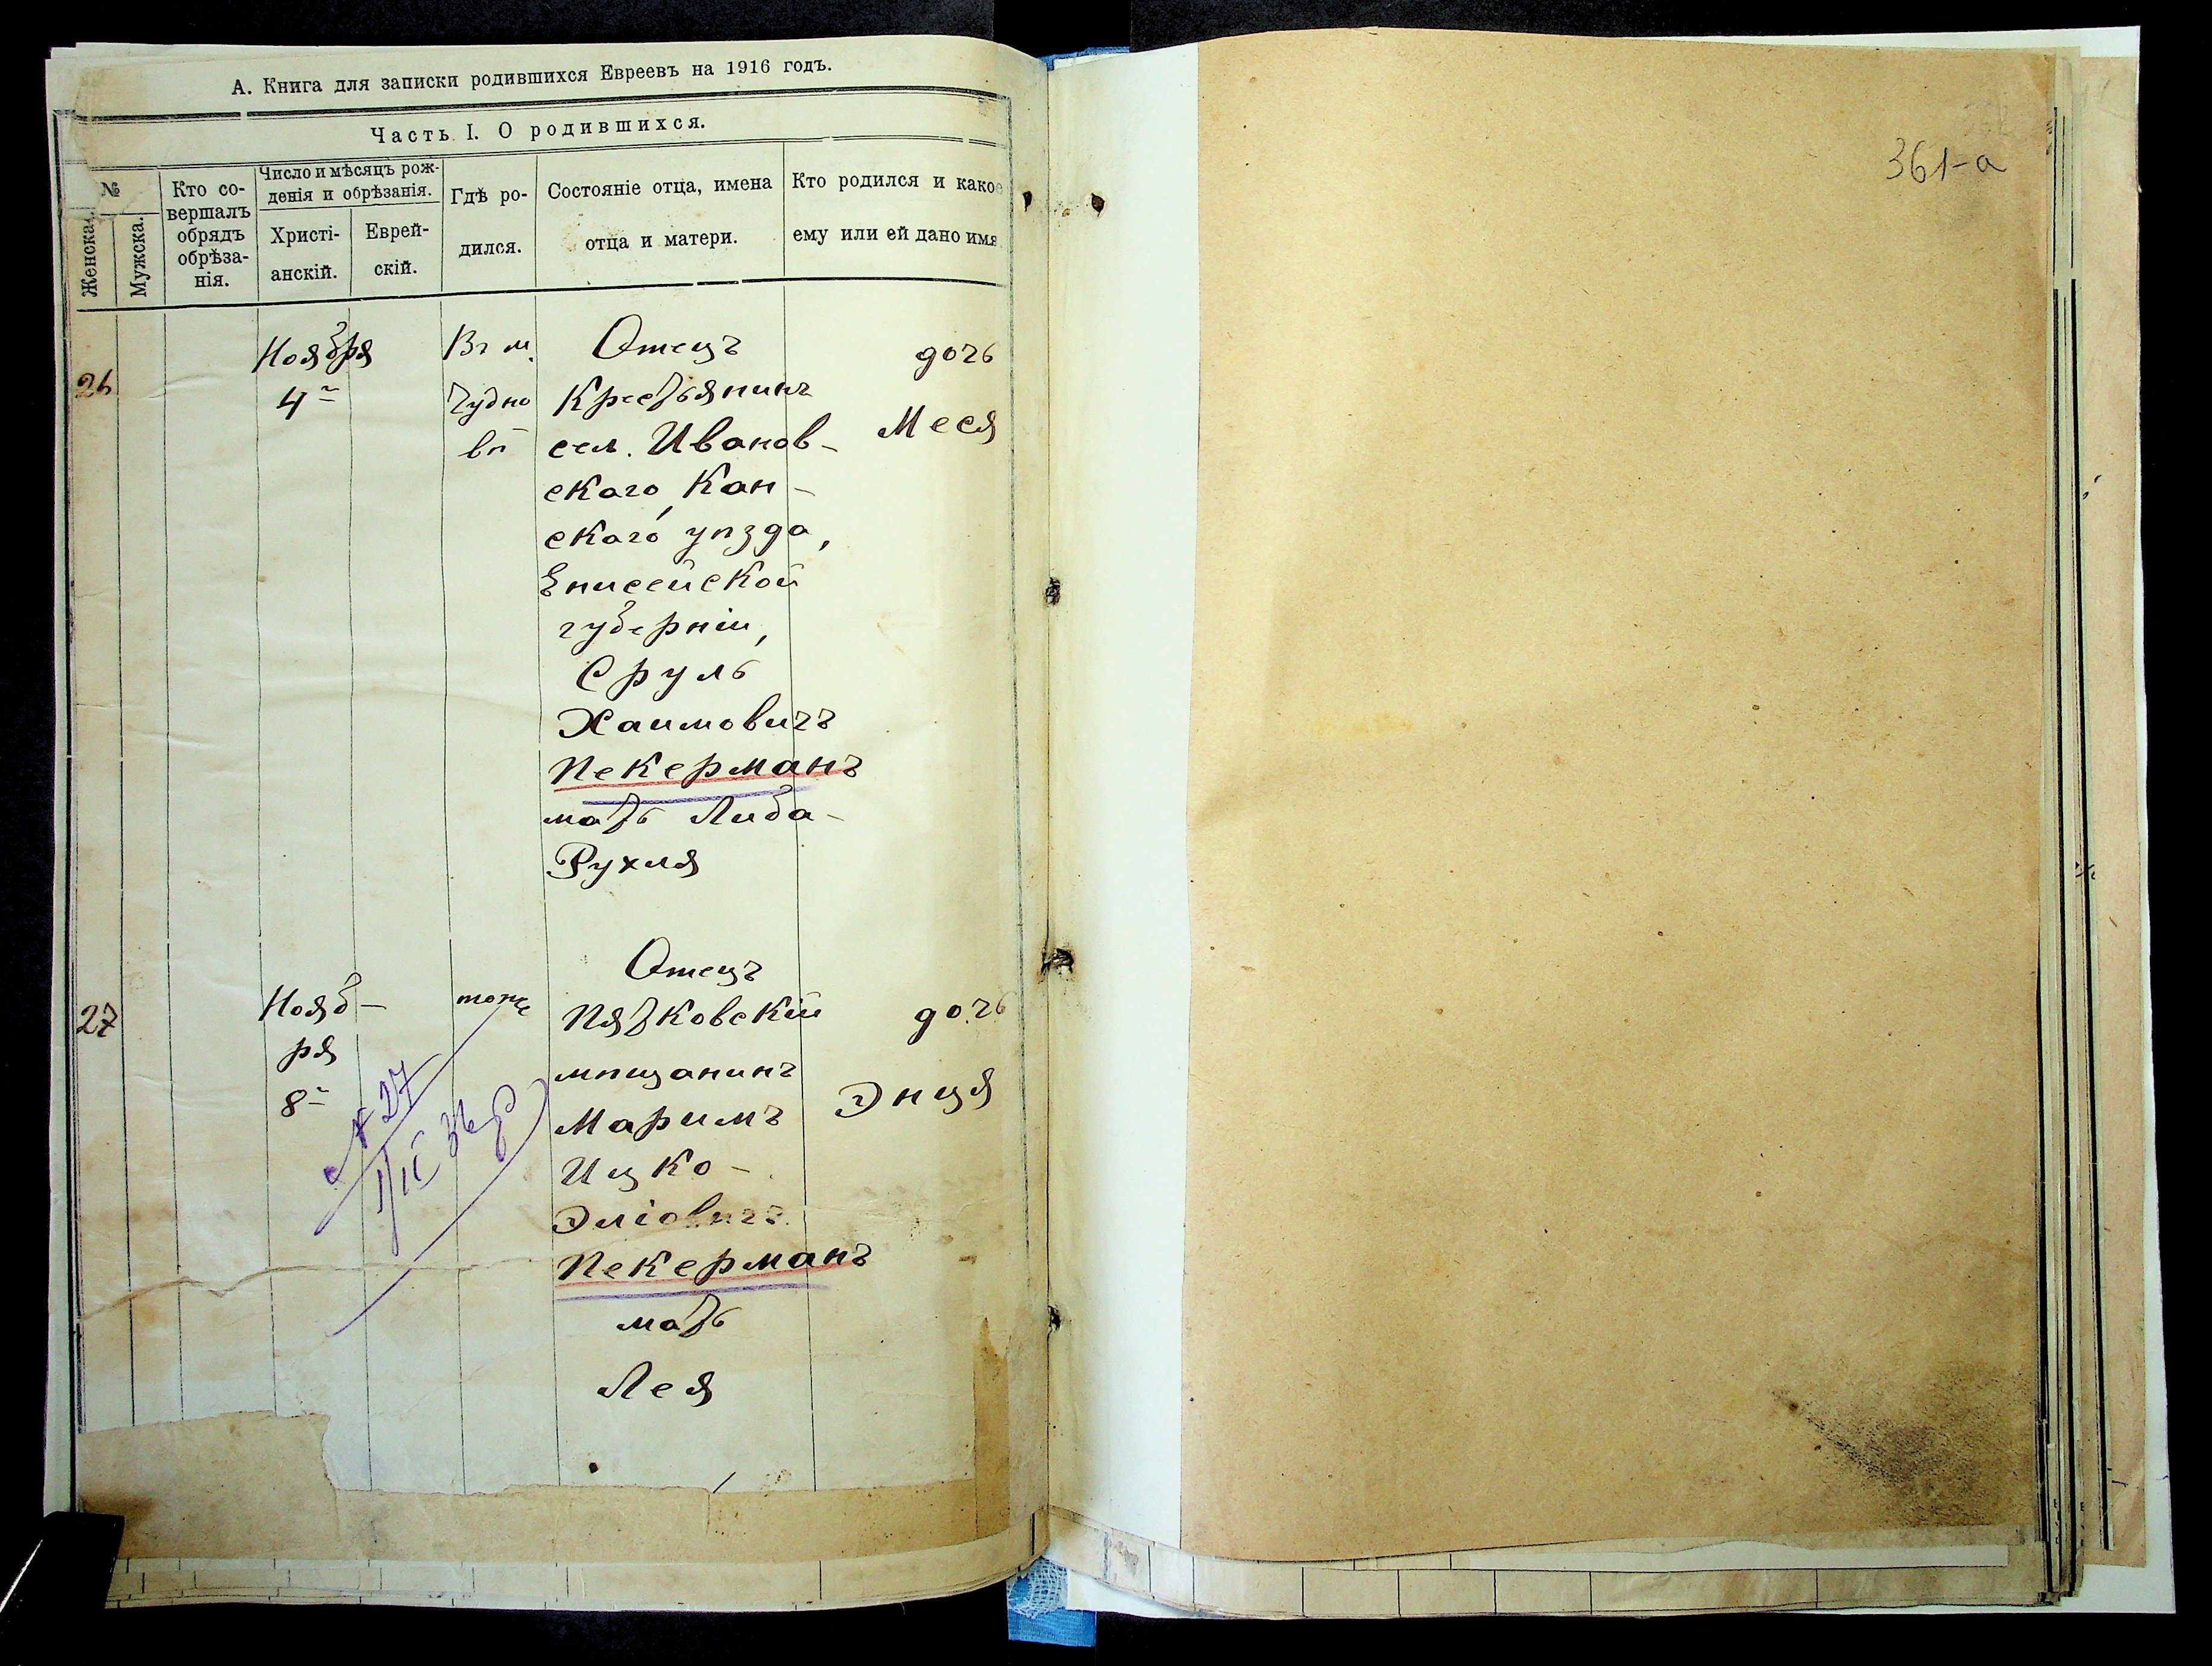 А. Книга для записки родившихся Евреевъ на 1916 годъ.
Часть I. О родившихся.
№
Женска.
Мужска.
Кто со-
вершалъ
обрядъ
обрѣза-
нія.
Число и мѣсяцъ рож-
денія и обрѣзанія.
Христі-
анскій.
Еврей-
скій.
Гдѣ ро-
дился.
Состояніе отца, имена
отца и матери.
Кто родился и какое
ему или ей дано имя
26
Ноября
4
Въ м.
Чудно
вѣ
Отецъ
Крестьянинъ
сел. Иванов-
скаго, Кан-
скаго уѣзда,
Енисейской
губерніи,
Сруль
Хаимовичъ
Пекерманъ
мать Либа-
Рухля
дочь
Меся
27
Нояб-
ря
8
тоже
Отецъ
Пятковскій
мѣщанинъ
Маримъ
Ицко-
Эліовичъ
Пекерманъ
мать
Лея
дочь
Энця
№ 27
361-а